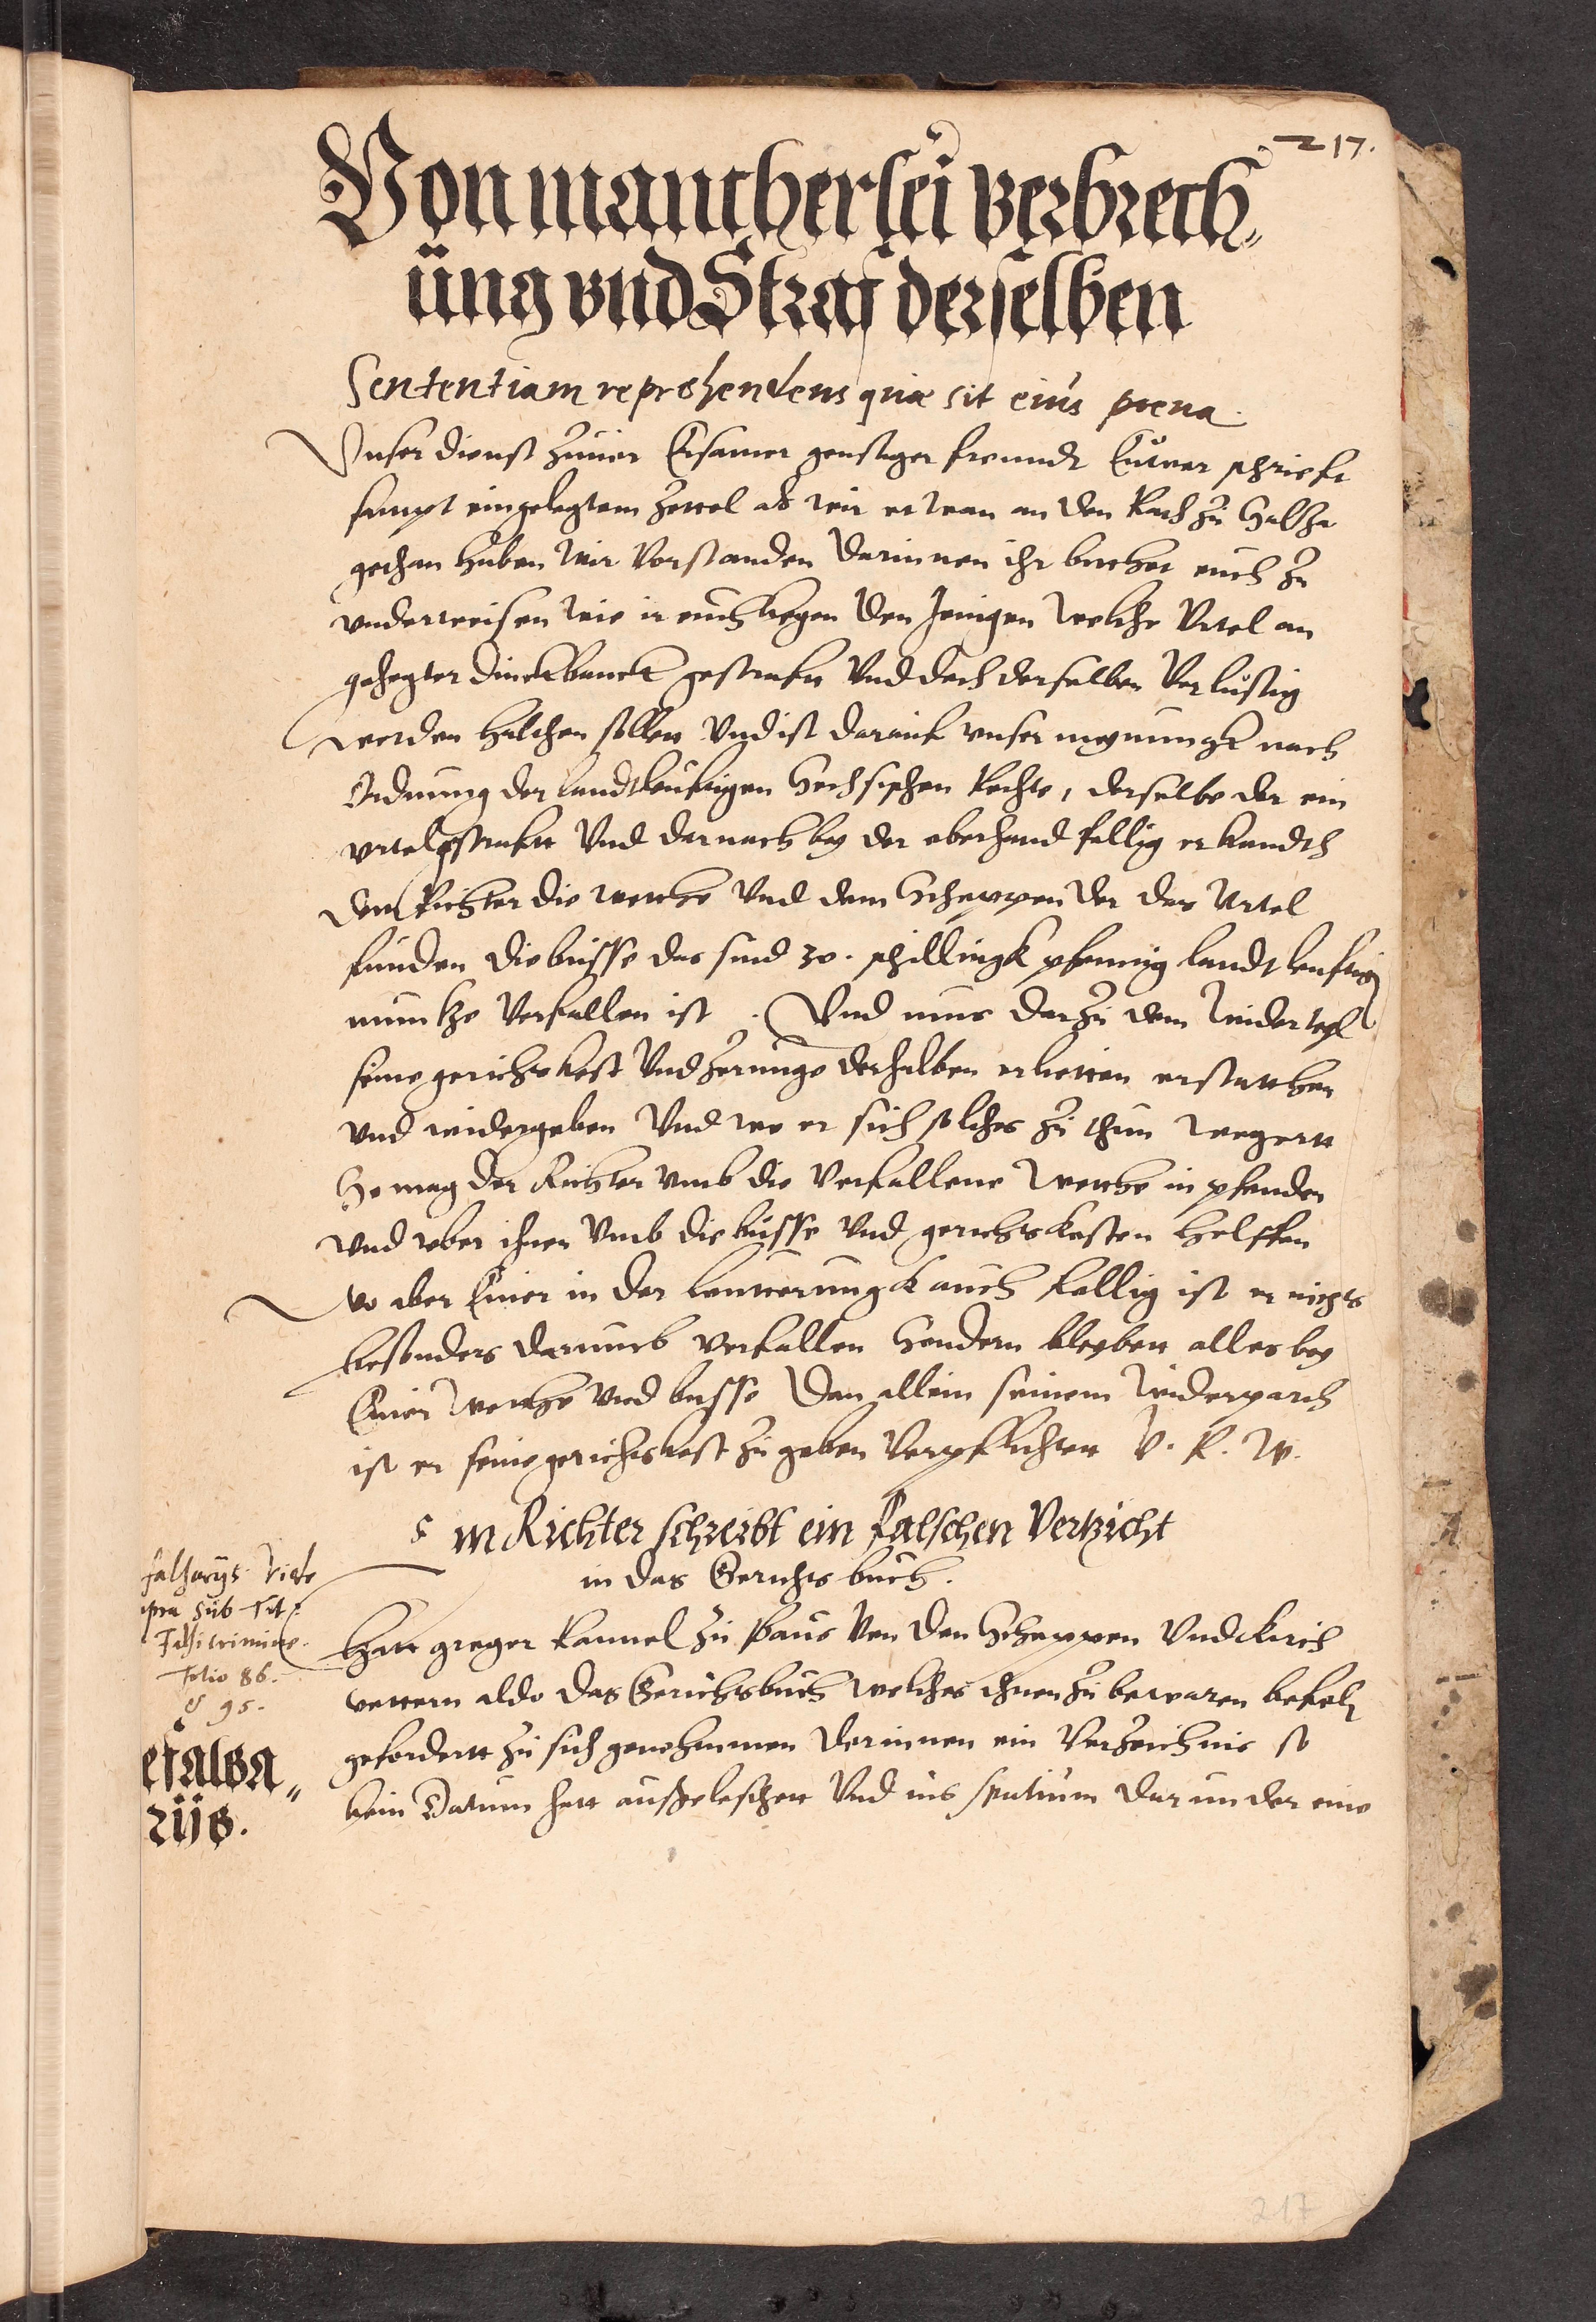 217.
Von mancherlei verbrech„
ung vnd Straf derselben
Sententiam reprehendens quae sit eius poena.
Vnser dienst zuuor Ersamer gonstiger freundt Euwer schrieft
sampt eingelegtem zettel als wir etwan an den Rath zu
gethan haben wir vorstanden darinnen ihr bittet euch zu
vnderweisen wie ir euch kegen den Jenigen welche Vrtel an
gehegter Dinckbanck gestrafft Vnd doch derselben verlustig
worden halthen sollett Vnd ist darauf vnser meynungk nach
Ordnung der landtleuftigen Sechsischen Rechte, derselbe der ein
vrtel gstrafft Vnd darnach bey der oberhand fellig erkandth
dem Richter die wette Vnd dem Scheppen der das Vrtel
funden die busse das sind 30. schillingk pfennig landtleuftig
muntze Verfallen ist . Vnd mus darzu dem widerteyl
seine gerichtskost Vnd zerunge derhalben erlietten erstatthen
vnd widergeben Vnd wo er sich solches zu thun wegertt
So mag der Richter vmb die verfallene wette in pfenden
vnd vber ihnen Vmb die busse Vnd gerichtskosten helffen
wo aber Einer in der leutterungk auch fellig ist er nichts
besonders darumb verfallen Sondern bleybett alles bey
Einer wette vnd busse Dan allein seinem widerparth
ist er seine gerichtskost zu geben verpflichtett V. R. W.
Ein Richter schreibt ein falschen Vertzicht
in das Gerichts buch.
falsarijs vide
supra sub Tit:
Falsi crimine.
Folio 86.
& 95.
e falsa„
rijs.
Hatt greger kannel zu Von den Scheppen Vnd kirch
vettern aldo das Gerichtsbuch welches ihnen zu bewaren befolen
gefordertt zu sich genohmmen darinnen ein Verzeichnis so
kein Datum hatt ausgeleschett Vnd ins spatium darunder eine
217